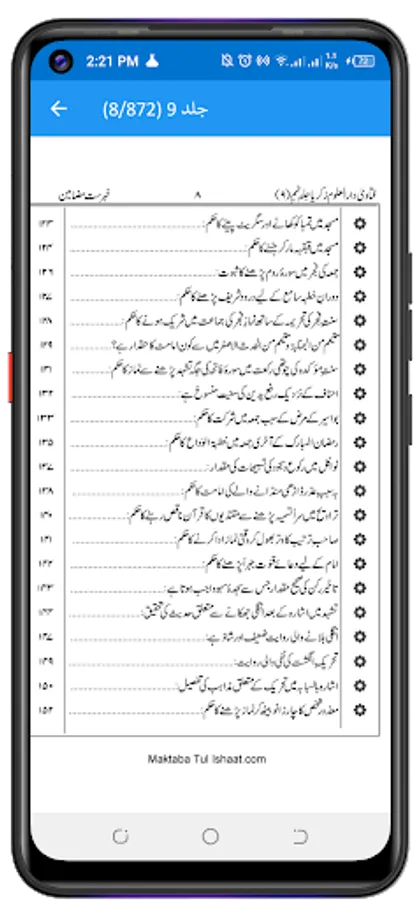 2:21 PM
1.5 K/s
22
جلد 9 (8/872)
فتاویٰ دارالعلوم زکریا جلد نہم (۹) ۸ فہرست مضامین
مسجد میں تمباکو کھانے اور سگریٹ پینے کا حکم: ۱۲۳
مسجد میں قہقہہ مار کر ہنسنے کا حکم: ۱۲۴
جمعہ کی فجر میں سورۂ روم پڑھنے کا ثبوت: ۱۲۶
دورانِ خطبہ سامع کے لیے درود شریف پڑھنے کا حکم: ۱۲۷
سنتِ فجر کی تحریمہ کے ساتھ نمازِ فجر کی جماعت میں شریک ہونے کا حکم: ۱۲۸
متیمم من الجنابۃ و متیمم من الحدث الاصغر میں سے کون امامت کا حقدار ہے؟ ۱۲۹
سنتِ مؤکدہ کی چوتھی رکعت میں سورۂ فاتحہ کی جگہ تشہد پڑھنے سے نماز کا حکم: ۱۳۱
احناف کے نزدیک رفع یدین کی سنیت منسوخ ہے: ۱۳۲
بواسیر کے مرض کے سبب جمعہ میں شرکت کا حکم: ۱۳۳
رمضان المبارک کے آخری جمعہ میں خطبۃ الوداع کا حکم: ۱۳۵
نوافل میں رکوع وسجود کی تسبیحات کی مقدار: ۱۳۷
بہ سببِ عذر ڈاڑھی منڈانے والے کی امامت کا حکم: ۱۳۸
تراویح میں سراً تسمیہ پڑھنے سے مقتدیوں کا قرآن ناقص رہنے کا حکم: ۱۴۰
صاحبِ ترتیب کا وتر بھول کر وقتی نماز ادا کرنے کا حکم: ۱۴۱
امام کے لیے دعائے قنوت جہراً پڑھنے کا حکم: ۱۴۲
تاخیرِ رکن کی صحیح مقدار جس سے سجدۂ سہو واجب ہوتا ہے: ۱۴۳
تشہد میں اشارہ کے بعد انگلی جھکانے سے متعلق حدیث کی تحقیق: ۱۴۴
انگلی ہلانے والی روایت ضعیف اور شاذ ہے: ۱۴۷
تحریکِ انگشت کی نفی والی روایت: ۱۴۹
اشارہ بالسبابہ میں تحریک کے متعلق مذاہب کی تفصیل: ۱۵۰
معذور شخص کا چار زانو بیٹھ کر نماز پڑھنے کا حکم: ۱۵۲
Maktaba Tul Ishaat.com